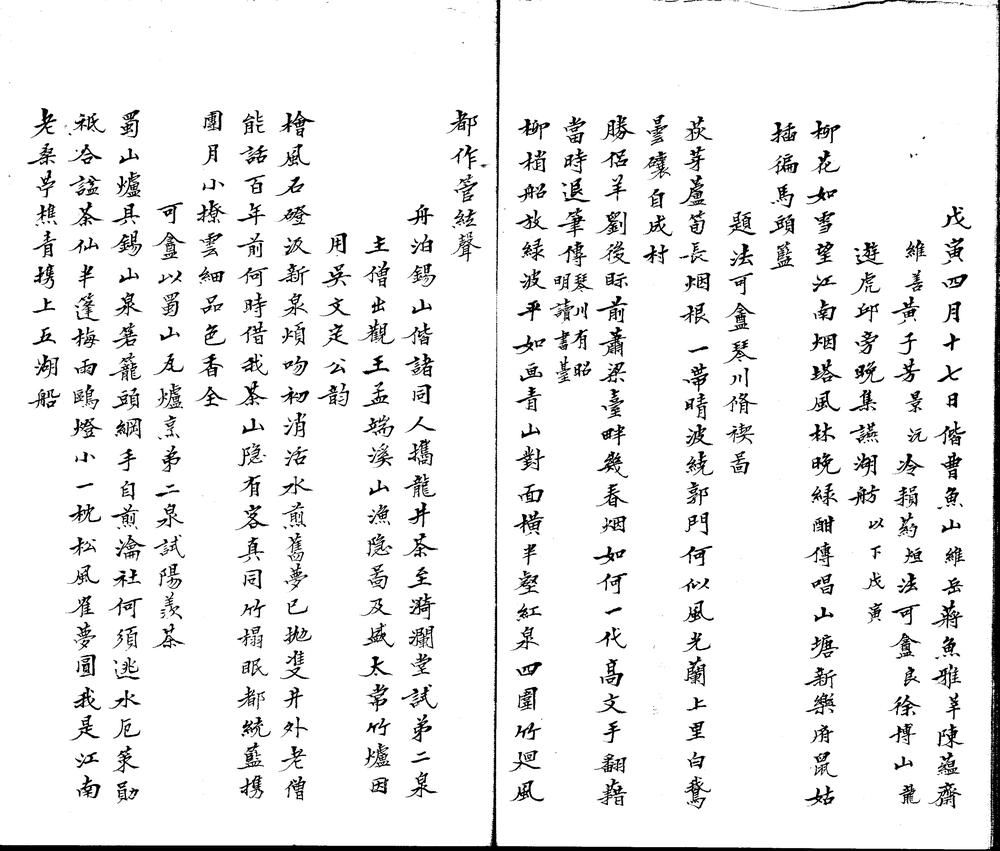 戊寅四月十七日偕曹魚山維岳蔣魚雅莘陳蘊齋
維善黃子芳景沅冷賴葯烜法可盦良徐博山龍
遊虎邱旁晚集讌湖舫以下戊寅
柳花如雪望江南烟塔風林晚綠酣傳唱山塘新樂府鼠姑
插徧馬頭籃
題法可盦琴川脩禊啚
荻芽蘆筍長烟根一帶晴波繞郭門何似風光蘭上里白鵞
曇礢自成村
勝侶羊劉後際前蕭梁臺畔幾春烟如何一代高文手翻藉
當時退筆傳琴川有昭明讀書臺
柳梢船放綠波平如画青山對面橫半壑紅泉四圍竹廻風
都作管絃聲
舟泊錫山偕諸同人攜龍井茶至漪瀾堂試弟二泉
主僧出觀王孟端溪山漁隐啚及盛太常竹爐因
用吳文定公韵
檜風石磴汲新泉煩吻初消活水煎舊夢已抛雙井外老僧
能話百年前何時借我茶山隐有客真同竹榻眠都統藍携
團月小撩雲細品色香全
可盦以蜀山瓦爐烹弟二泉試陽羨茶
蜀山爐具錫山泉箬籠頭綱手自煎瀹社何須逃水厄策勛
祇合諡茶仙半篷梅雨鷗燈小一枕松風雀夢圓我是江南
老桑苧樵青携上五湖船